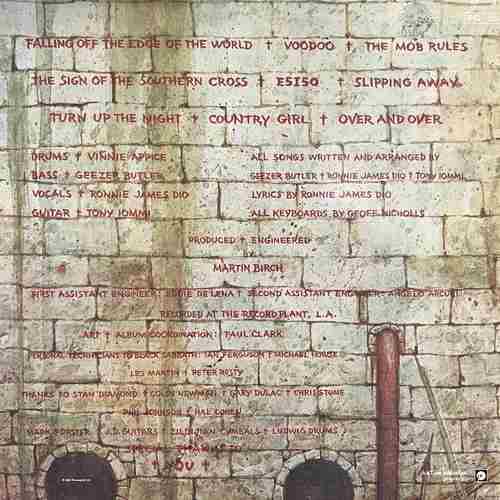 FALLING OFF THE EDGE OF THE WORLD † VOODOO † THE MOB RULES
THE SIGN OF THE SOUTHERN CROSS † E5150 † SLIPPING AWAY
TURN UP THE NIGHT † COUNTRY GIRL † OVER AND OVER
DRUMS † VINNIE APPICE
BASS † GEEZER BUTLER
VOCALS † RONNIE JAMES DIO
GUITAR † TONY IOMMI
ALL SONGS WRITTEN AND ARRANGED BY
GEEZER BUTLER † RONNIE JAMES DIO † TONY IOMMI
LYRICS BY RONNIE JAMES DIO
ALL KEYBOARDS BY GEOFF NICHOLLS
PRODUCED † ENGINEERED
BY
MARTIN BIRCH
FIRST ASSISTANT ENGINEER: EDDIE DELENA † SECOND ASSISTANT ENGINEER: ANGELO ARCURI
RECORDED AT THE RECORD PLANT, L.A.
ART † ALBUM COORDINATION: PAUL CLARK
PERSONAL TECHNICIANS TO BLACK SABBATH: IAN FERGUSON † MICHAEL HOWSE
LES MARTIN † PETER RESTY
THANKS TO STAN DIAMOND † COLIN NEWMAN † GARY DULAC † CHRIS STONE
PAUL JOHNSON † HAL COHEN
MARK FORSTER † J.D. GUITARS † ZILDJIAN CYMBALS † LUDWIG DRUMS
SPECIAL THANKS TO
† YOU †